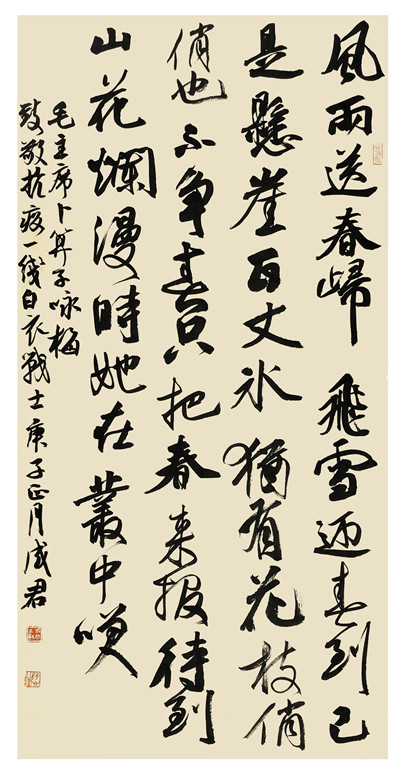 風雨送春歸飛雪迎春到已
是懸崖百丈冰獨有花枝俏
俏也不爭春只把春来报待到
山花爛漫時她在叢中咲
毛主席卜算子咏梅
致敬抗疫一线白衣戰士庚子正月成君